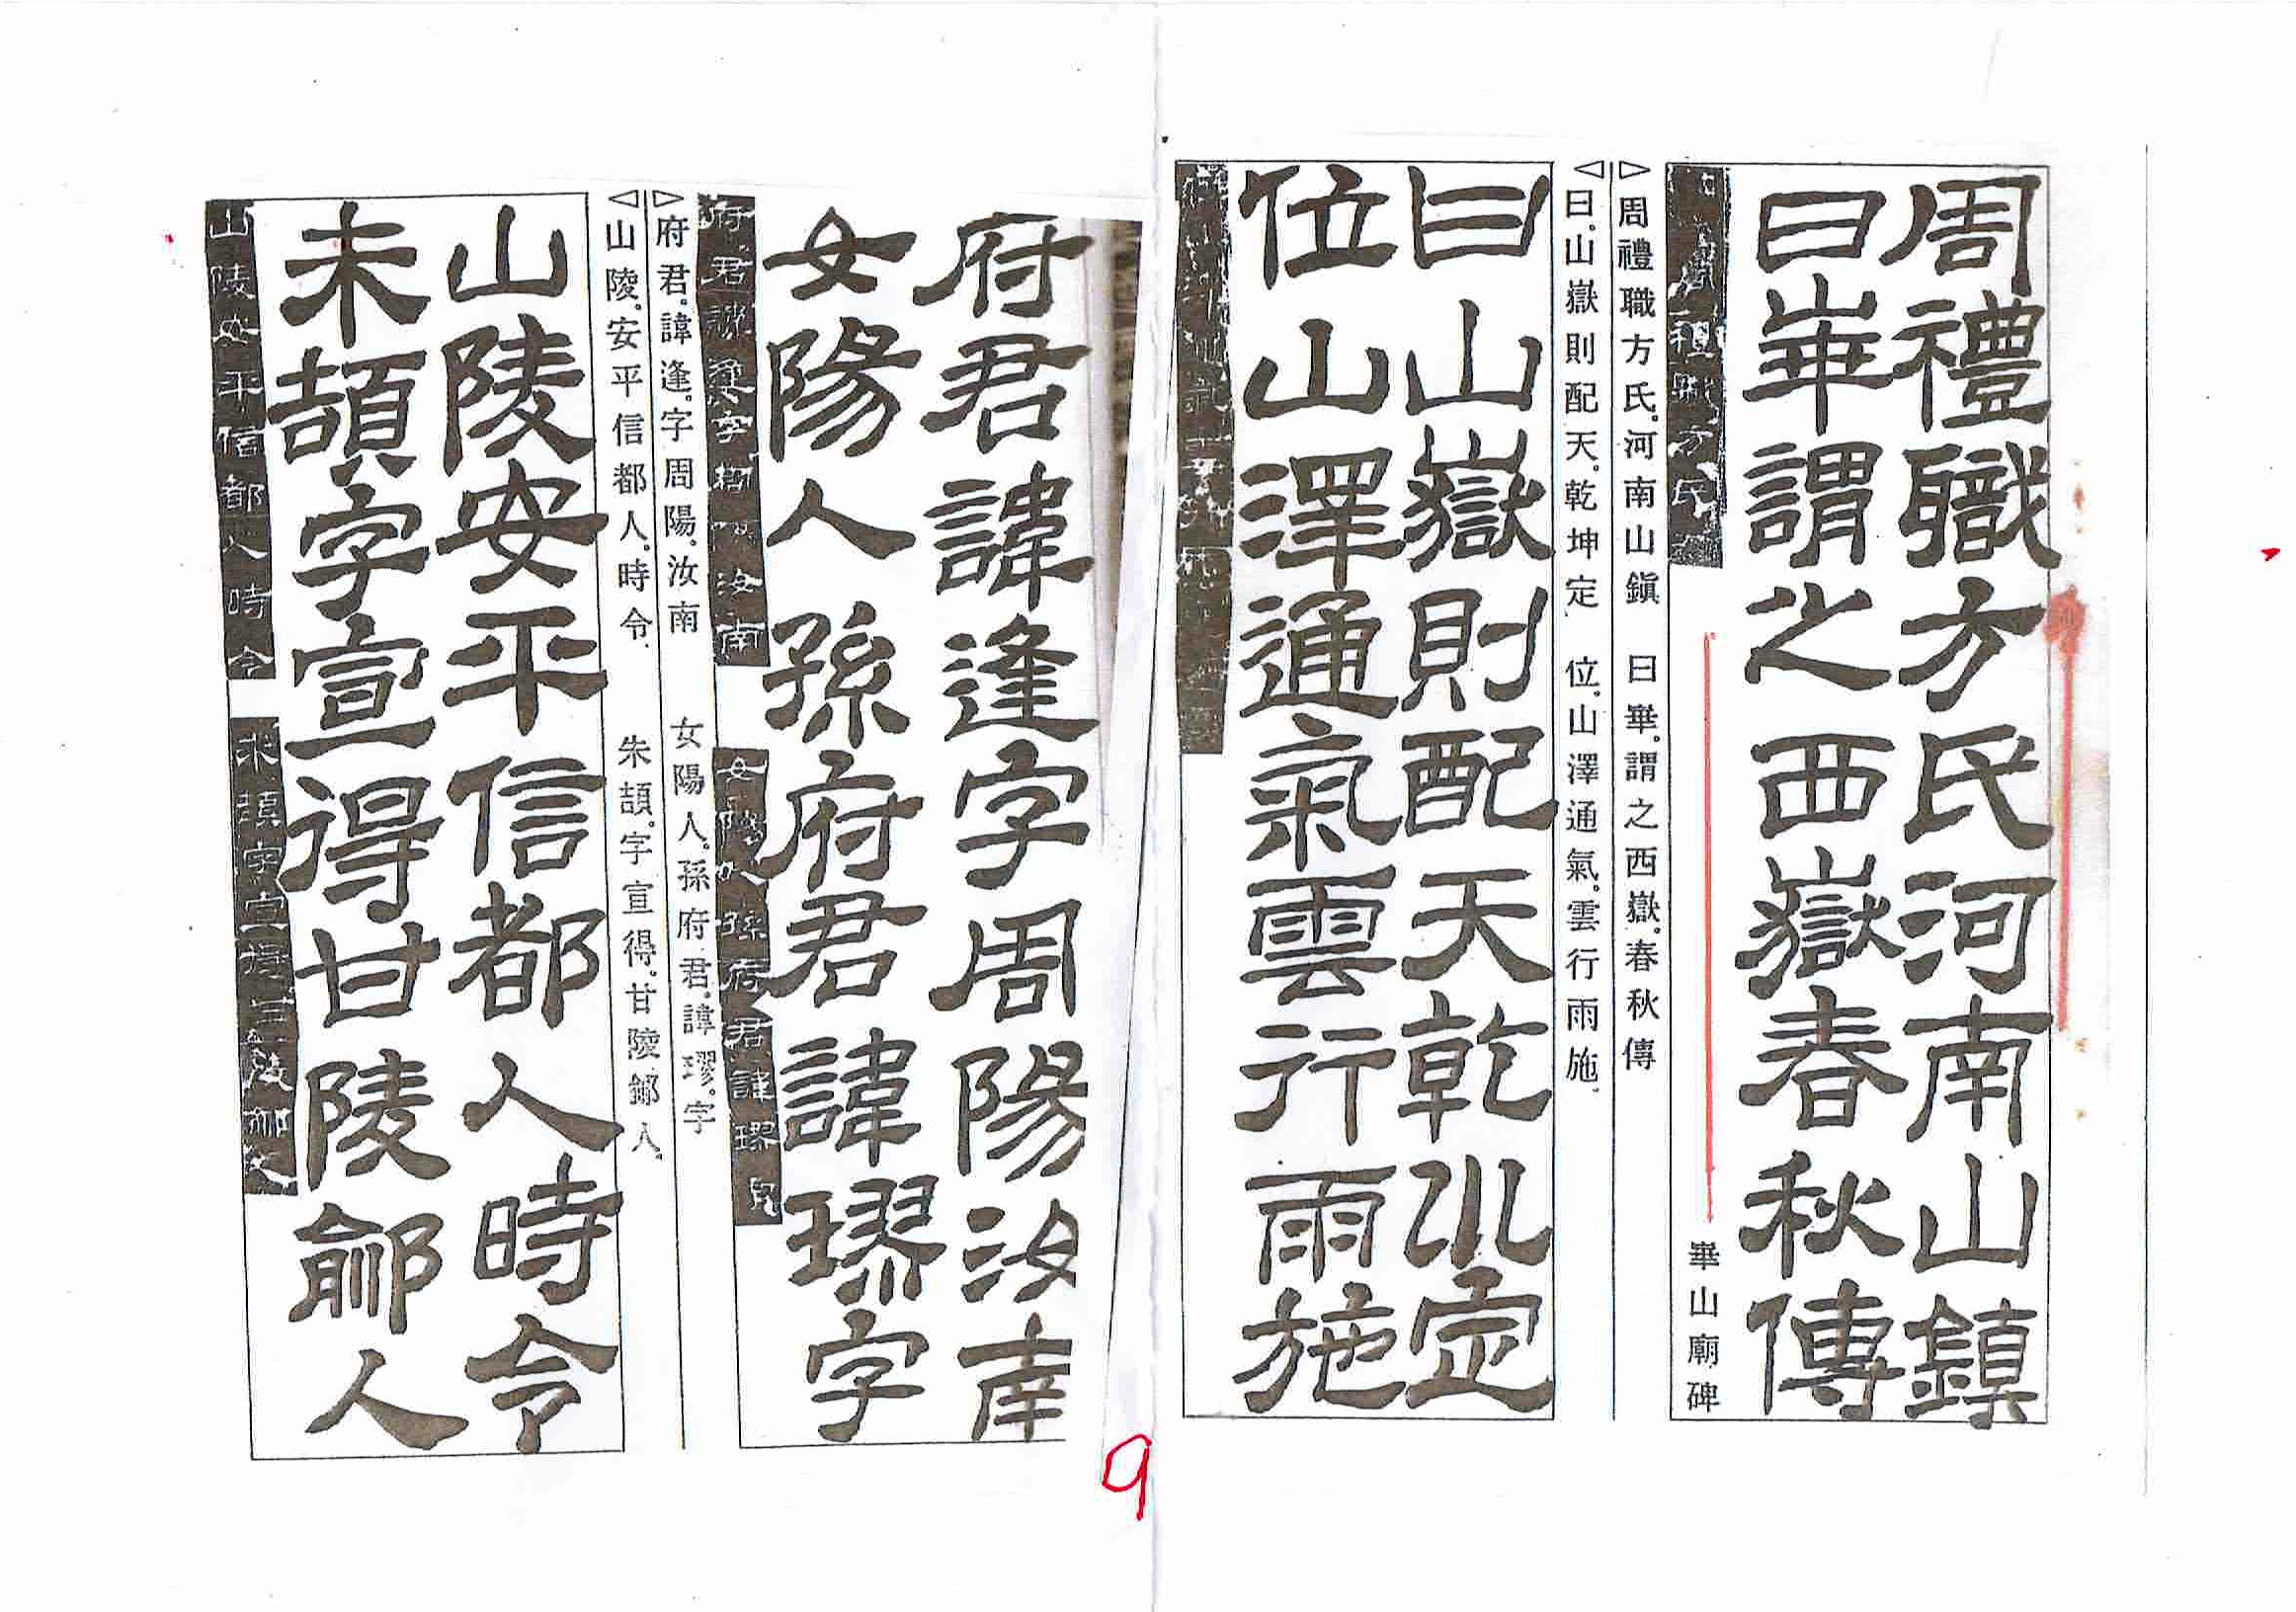 周禮職方氏河南山鎮
曰崋謂之西嶽春秋傳
崋山廟碑
▷周禮職方氏。河南山鎮 曰崋。謂之西嶽。春秋傳
◁曰。山嶽則配天。乾坤定 位。山澤通氣。雲行雨施。
曰山嶽則配天乾川定
位山澤通氣雲行雨施
府君諱逢字周陽汝南
女陽人孫府君諱璆字
▷府君。諱逢。字周陽。汝南 女陽人。孫府君。諱璆。字
◁山陵。安平信都人。時令 朱頡。字宣得。甘陵鄃人。
山陵安平信都人時令
朱頡字宣得甘陵鄃人
山陵安平信都人時令
9